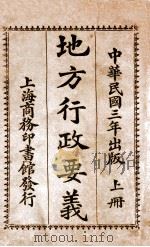 中華民國三年出版 上册
地方行政要義
上海商務印書館發行
mtoou.info